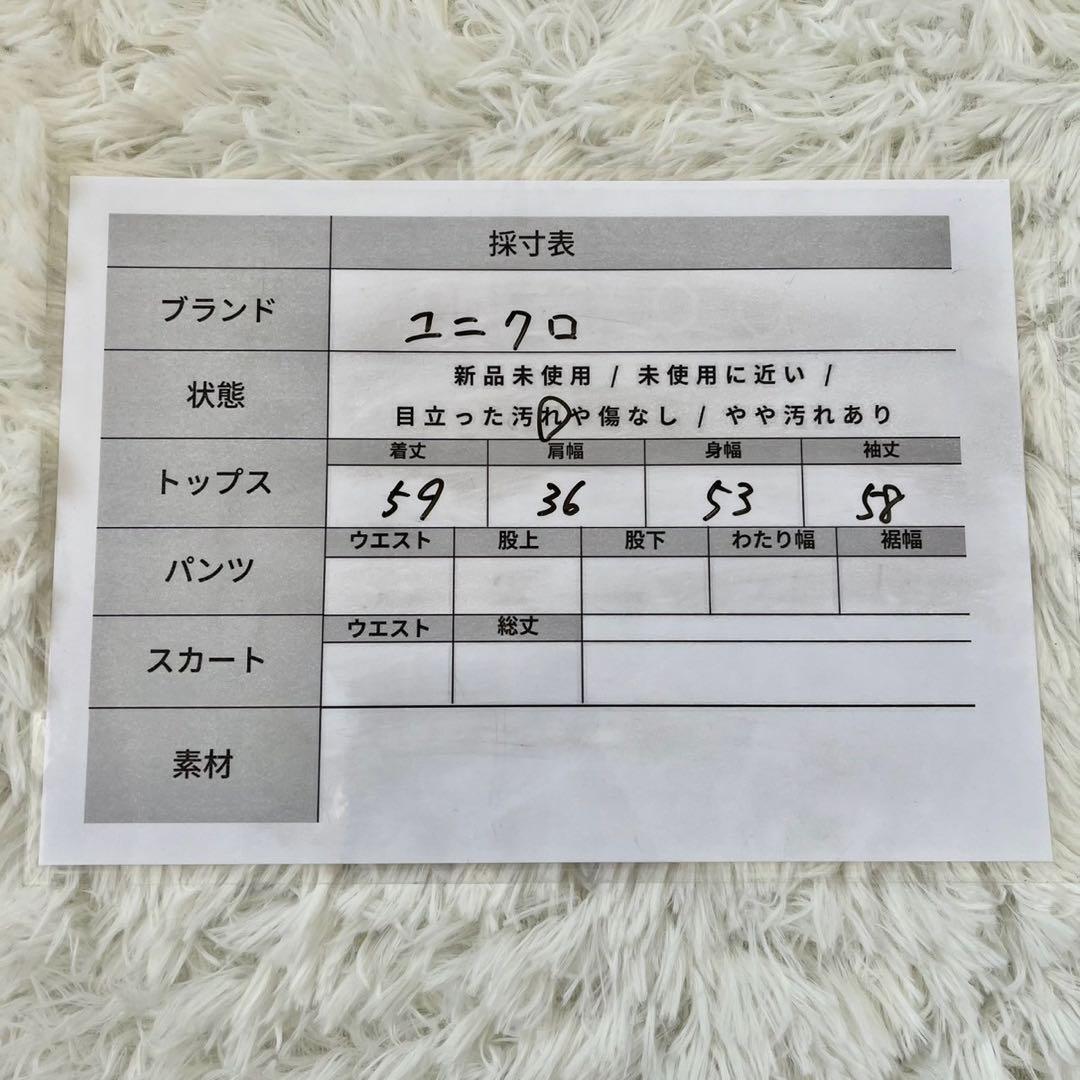 採寸表
ブランド ユニクロ
状態 新品未使用 / 未使用に近い /
目立った汚れや傷なし / やや汚れあり
トップス 着丈 肩幅 身幅 袖丈
59 36 53 58
パンツ ウエスト 股上 股下 わたり幅 裾幅
スカート ウエスト 総丈
素材